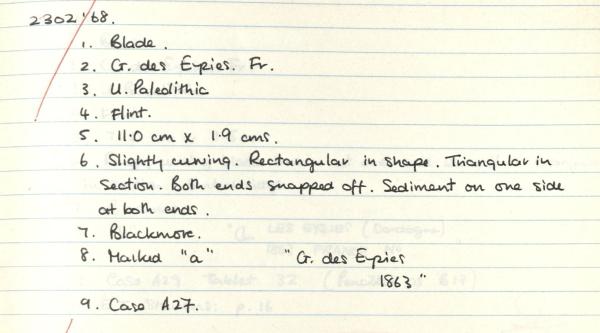 2302'68.
1. Blade.
2. G. des Eyzies. Fr.
3. U. Paleolithic
4. Flint.
5. 11.0 cm x 1.9 cms.
6. Slightly curving. Rectangular in shape. Triangular in
section. Both ends snapped off. Sediment on one side
at both ends.
7. Blackmore.
8. Marked "a" "G. des Eyzies
1863"
9. Case A27.